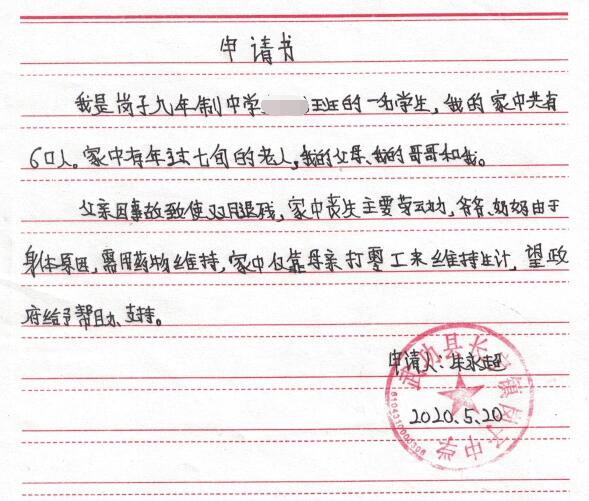 申请书
我是岗子九年制中学 班的一名学生,我的家中共有
6口人。家中有年过七旬的老人,我的父母、我的哥哥和我。
父亲因事故致使双腿残,家中丧失主要劳动力,爷爷、奶奶由于
身体原因,需用药物维持,家中仅靠母亲打零工来维持生计,望政
府给予帮助、支持。
申请人:朱永超
2020.5.20
武功县长宁镇岗子中学